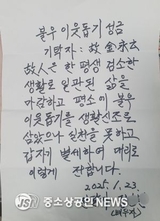 불우 이웃돕기 성금
기탁자: 故 金永玄
故人은 한 평생 검소한
생활로 일관된 삶을
마감하고 평소에 불우
이웃돕기를 생활신조로
삼았으나 실천을 못하고
갑자기 별세하여 대리로
이렇게 전합니다.
2025. 1. 23.
(배우자)
중소상공인뉴스